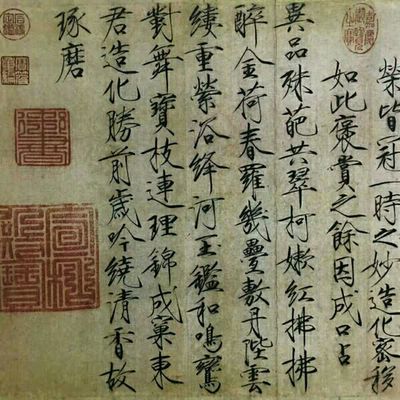 榮皆冠一時之妙造化密移
如此褒賞之餘因成口占
異品殊葩共翠柯嫩紅拂拂
醉金荷春羅幾疊敷丹陛雲
縷重縈浴絳河玉鑑和鳴鸞
對舞寶枝連理錦成窠東
君造化勝前歲吟繞清香故
琢磨